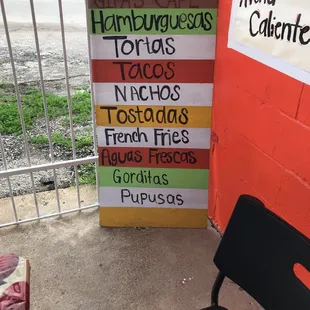 Hamburguesas
Tortas
Tacos
NACHOS
Tostadas
French Fries
Aguas Frescas
Gorditas
Pupusas
Caliente